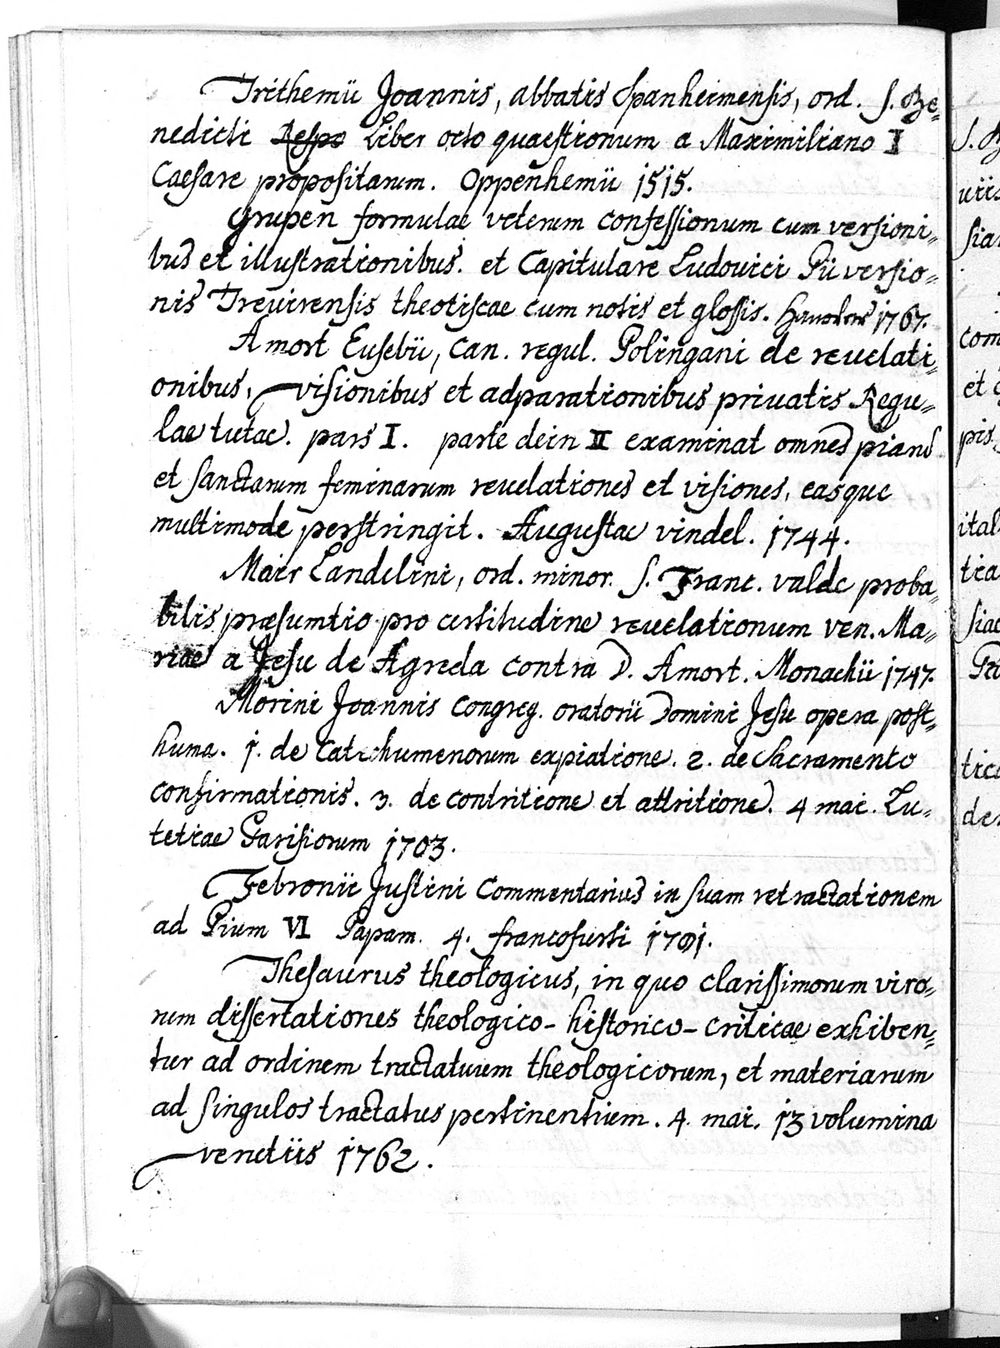 Trithemii Joannis, abbatis Spanheimensis, ord. S. Be-
nedicti Respo Liber octo quaestionum a Maximiliano I
Caesare propositarum. Oppenhemii 1515.
Grupen formulae veterum confessionum cum versioni-
bus et illustrationibus. et Capitulare Ludovici Pii versio-
nis Trevirensis theotiscae cum notis et glossis. Hanover 1767.
Amort Eusebii, can. regul. Polingani de revelati-
onibus, visionibus et adparationibus privatis Regu-
lae tutae. pars I. parte dein II examinat omnes piand
et sanctarum feminarum revelationes et visiones, easque
multimode perstringit. Augustae vindel. 1744.
Mair Landelini, ord. minor. S. Franc. valde proba-
bilis præsumtio pro certitudine revelationum ven. Ma-
riae a Jesu de Agreda contra D. Amort. Monachii 1747.
Morini Joannis congreg. oratorii Domini Jesu opera post-
huma. 1. de Catechumenorum expiatione. 2. de Sacramento
confirmationis. 3. de contritione et attritione. 4 mai. Lu-
tetiae Parisiorum 1703.
Febronii Justini Commentarius in suam retractationem
ad Pium VI Papam. 4. francofurti 1701.
Thesaurus theologicus, in quo clarissimorum viro-
rum dissertationes theologico-historico-criticae exhiben-
tur ad ordinem tractatuum theologicorum, et materiarum
ad singulos tractatus pertinentium. 4. mai. 13 volumina
venetiis 1762.